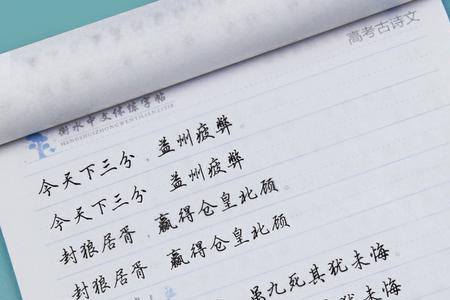 高考古诗文
衡水中文体练字帖
HENGSHUIZHONGWENTILIANZITIE
今天下三分，益州疲弊。
今天下三分　益州疲弊
封狼居胥，赢得仓皇北顾。
封狼居胥　赢得仓皇北顾
虽九死其犹未悔